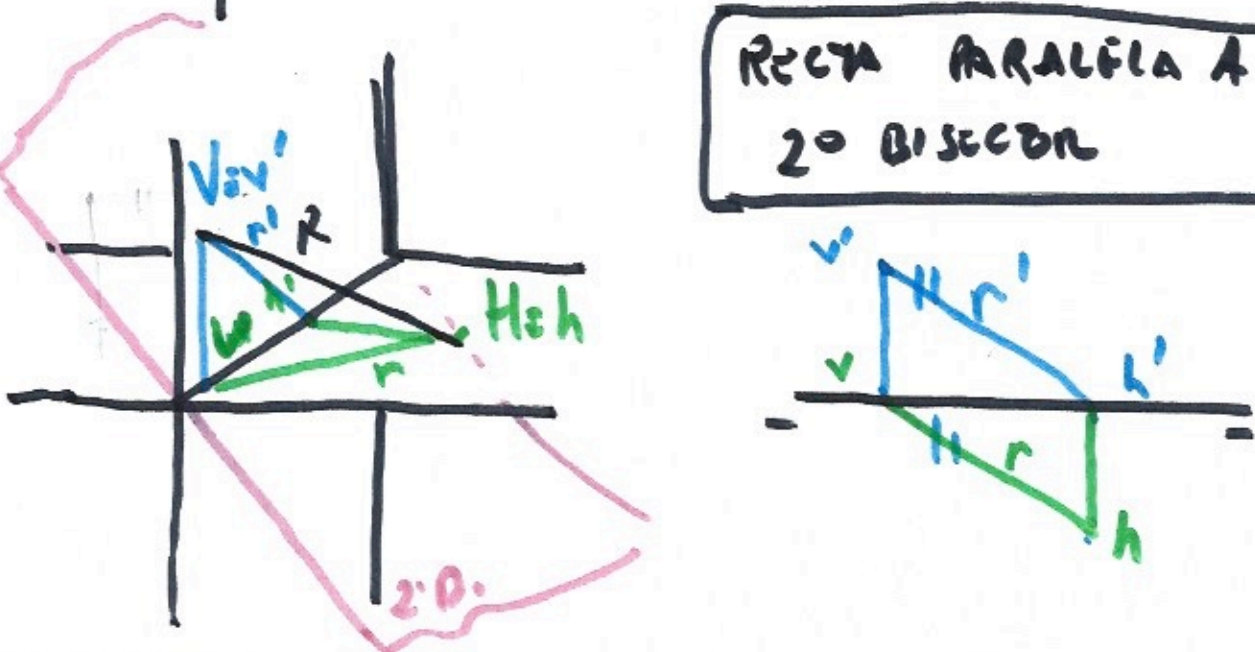 RECTA PARALELA A
2º BISECTOR
V≡v'
r'
R
h'
v
H≡h
r
2º B.
v'
r'
v
h'
r
h